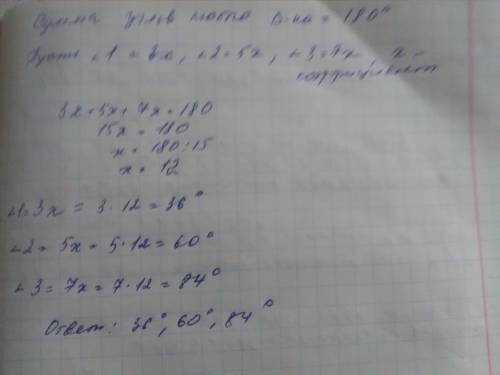 Сумма углов любого Δ-ка = 180°
Пусть ∠1 = 3x, ∠2 = 5x, ∠3 = 7x x -
коэффициент
3x + 5x + 7x = 180
15x = 180
x = 180 : 15
x = 12
∠1 = 3x = 3 · 12 = 36°
∠2 = 5x = 5 · 12 = 60°
∠3 = 7x = 7 · 12 = 84°
Ответ: 36°, 60°, 84°